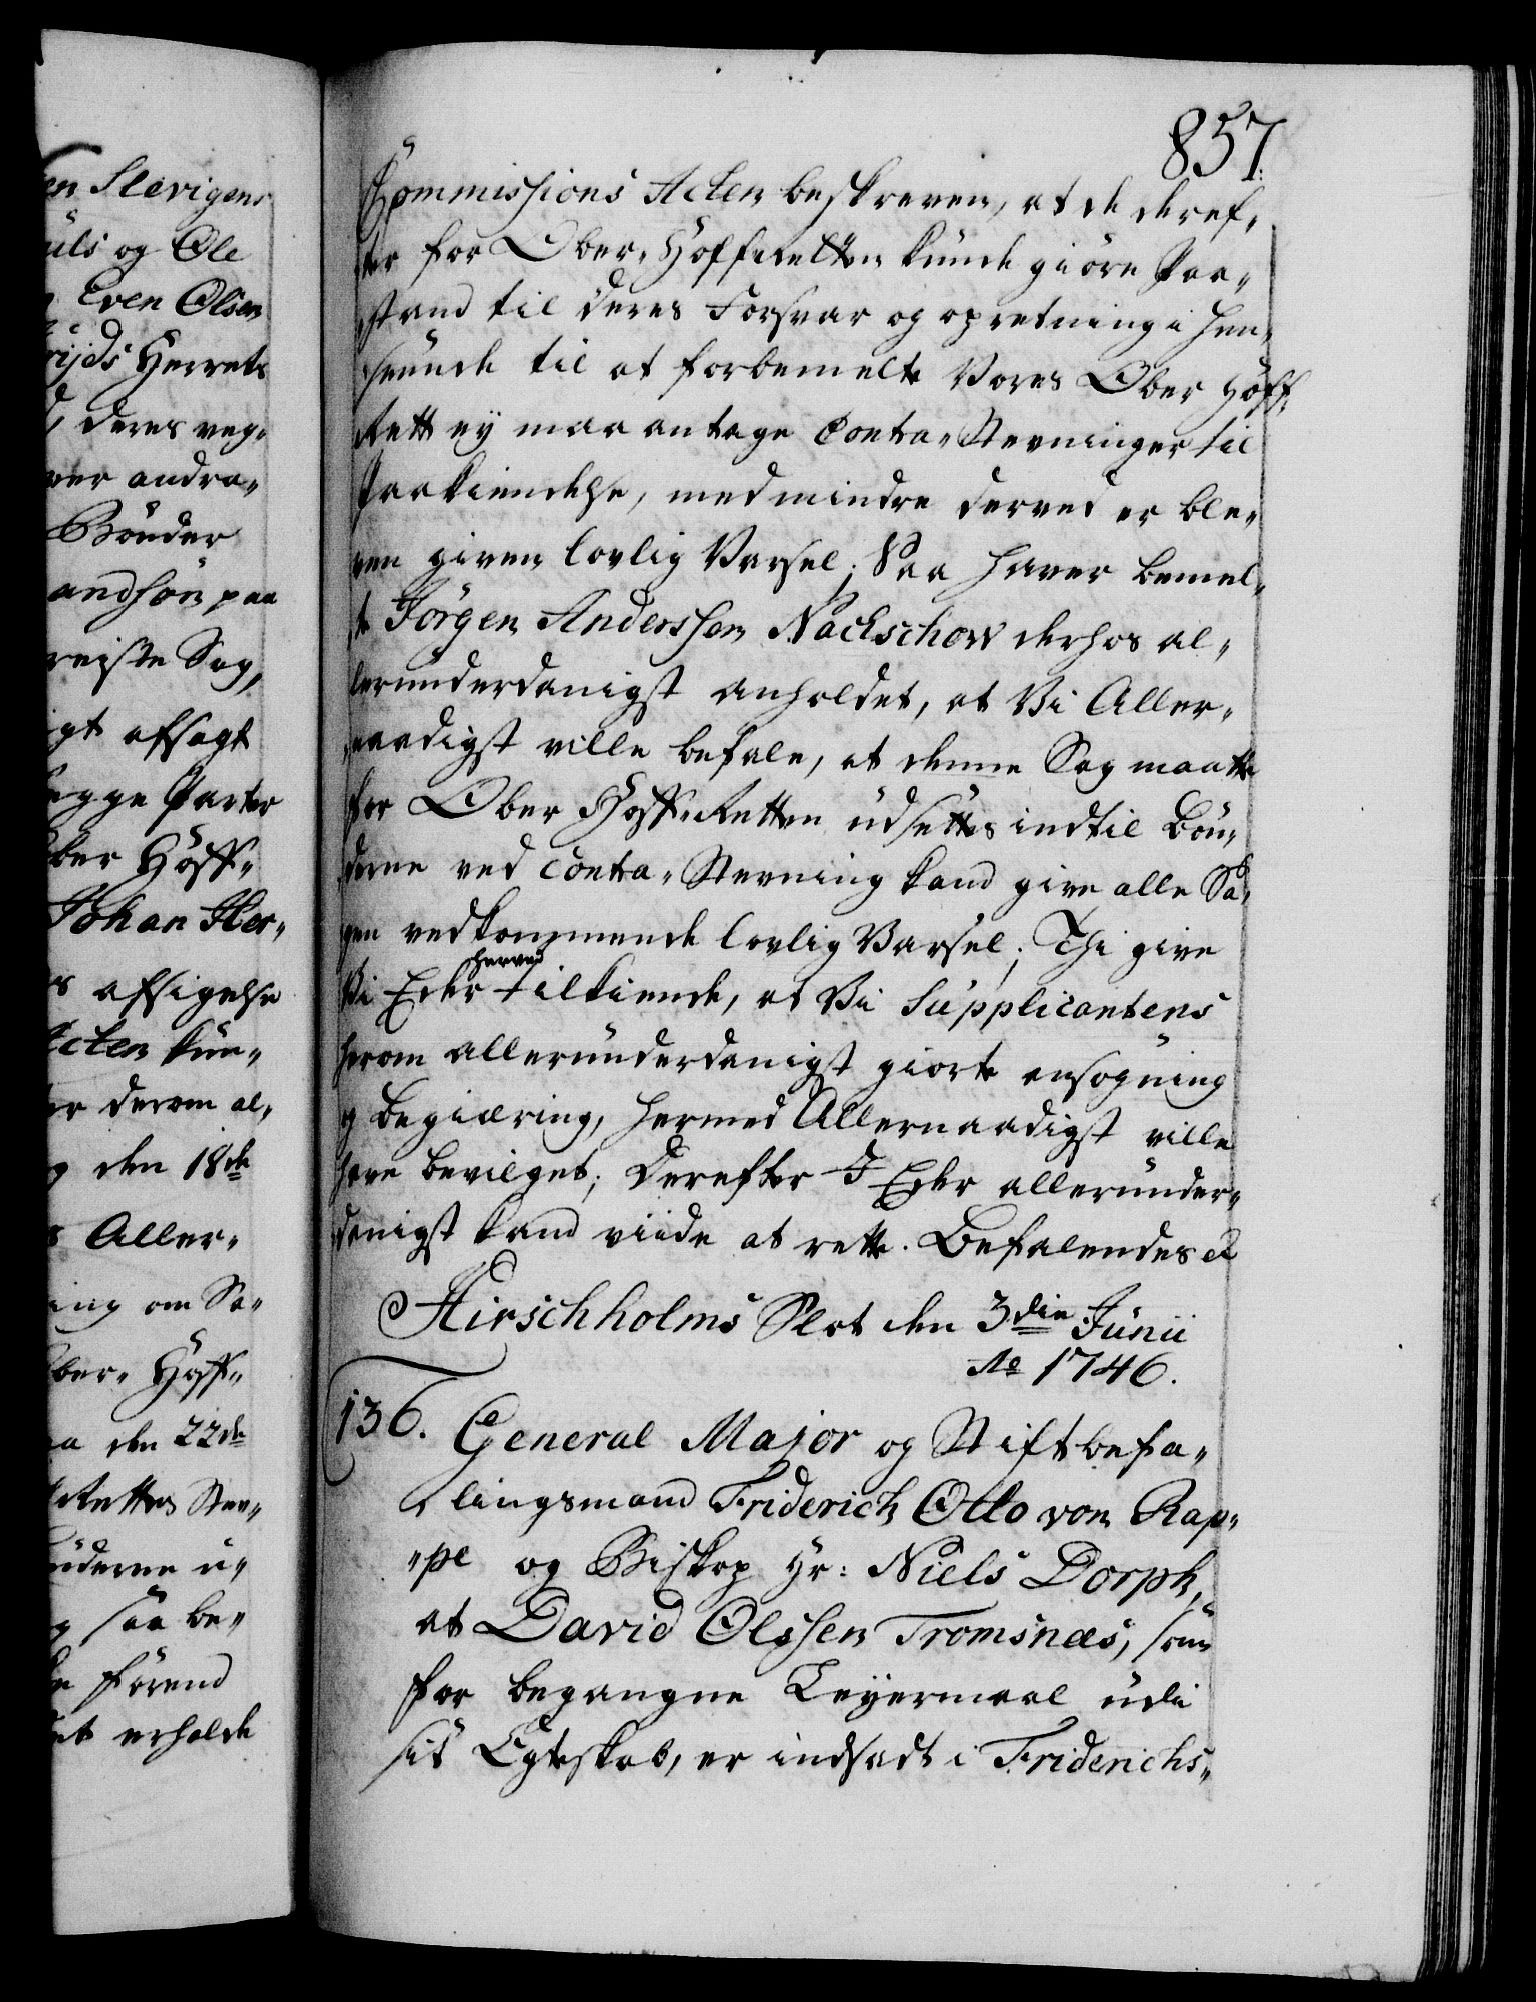 857.
Commissions Acten beskreven, at de deref-
ter for Ober-Hoffretten kunde giöre Paa-
stand til deres Forsvar og opretning i hen-
seende til at forbemelte Vores Ober Hoff-
Rett ey maa antage Contra-Stevninger til
Paakiendelse, med mindre derved er ble-
ven given lovlig Varsel; Saa haver bemel-
te Jörgen Anderssen Nackschow derhos al-
lerunderdanigst anholdet, at Vi Aller-
naadigst ville befale, at denne Sag maatte
for Ober Hoff-Retten udsettes indtil Bön-
derne ved Contra-Stevning kand give alle Sa-
gen vedkommende lovlig Varsel; Thi give
Vi Eder herved tilkiende, at Vi Supplicantens
herom allerunderdanigst giorte ansøgning
og begiæring, hermed Allernaadigst ville
have bevilget; Derefter I Eder allerunder-
danigst kand viide at rette. Befalendes etc
Hirschholms Slot den 3die Junii
Ao 1746.
136. General Major og Stiftbefa-
lingsmand Friderich Otto von Rap-
"pe og Biskop Hr: Niels Dorph,
at David Olssen Tromsnæs, som
for begangne Leyermaal udi
sit Egteskab, er indsadt i Friderichs-
en Slevigens
uls og Ole
Even Olsen
rijds Herrets
deres veg-
ver andra-
Bönder
andsön paa
reiste Sag,
igt afsagt
egge Parter
ber Hoff-
Johan Her-
s afsigelse
Acten kun-
er derom al-
g den 18de
s Aller-
ing om Sa-
ber-Hoff-
aa den 22de
Rettes Stev-
nderne u-
g saa be-
förend
et erholde